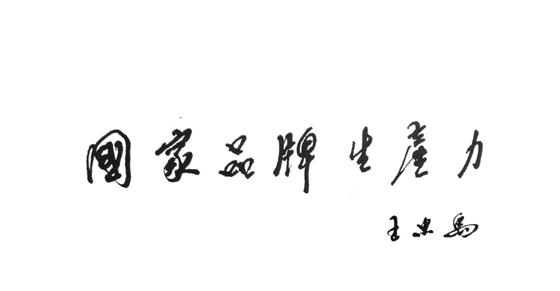 國家品牌生產力
王忠禹